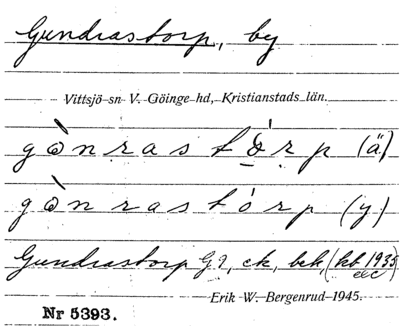 Gundrastorp, by
Vittsjö sn V. Göinge hd, Kristianstads län.
gònrastó̱rp (ä)
gònrastórp (y)
Gundrastorp G?, ek, bek, (kb 1935 etc)
Erik W. Bergenrud 1945.
Nr 5393.